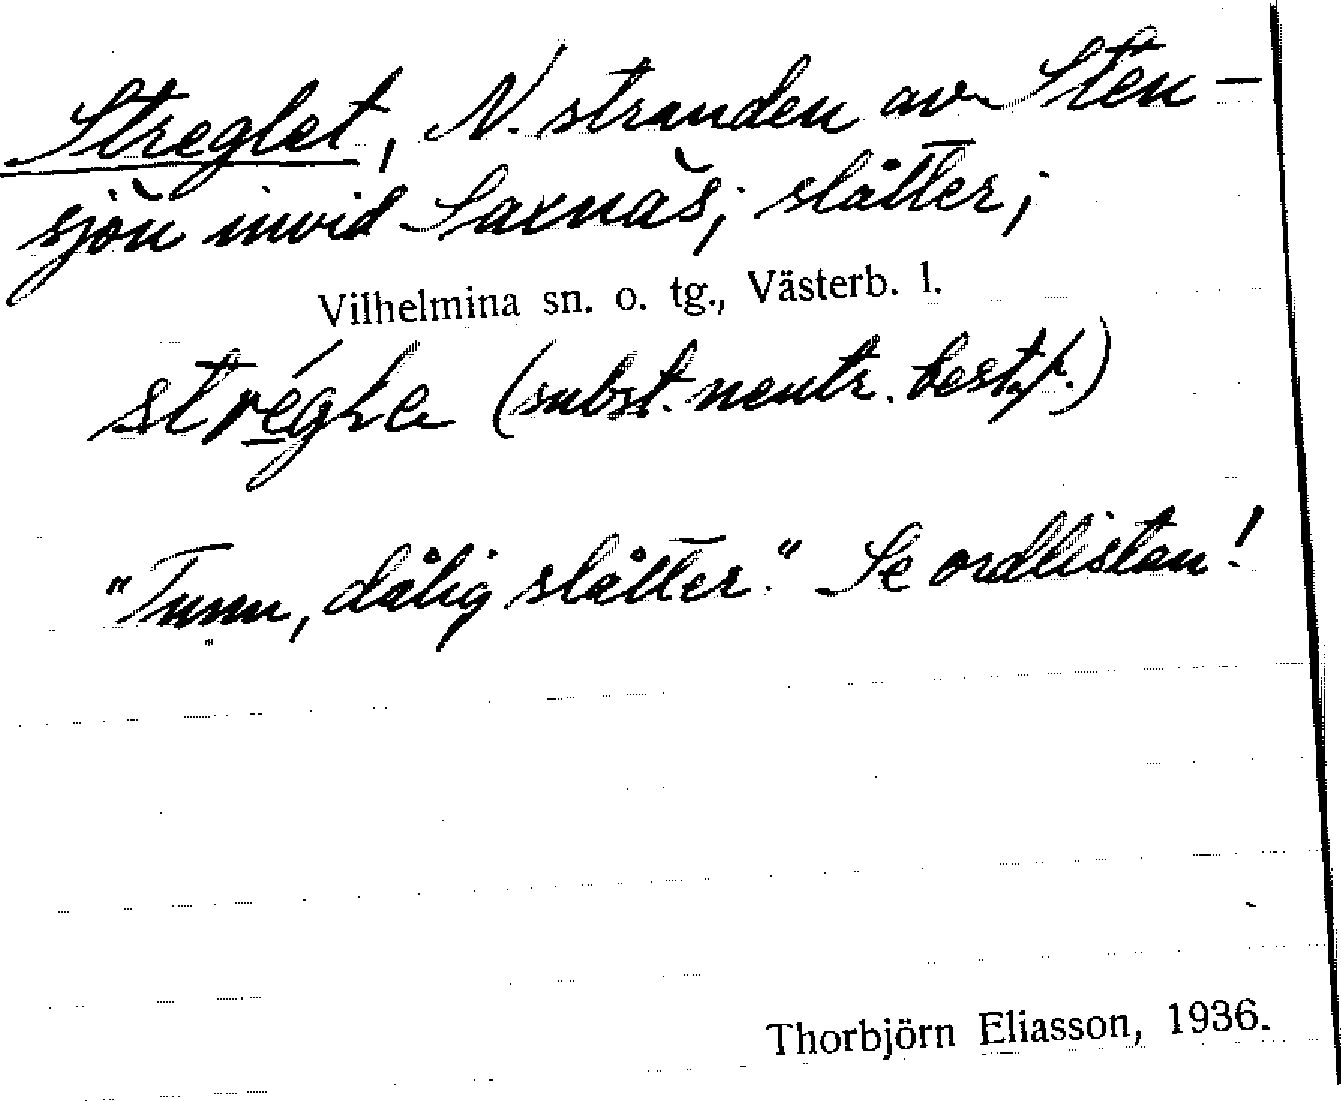 Streglet, N. stranden av Sten-
sjön invid Saxnäs; slåtter;
Vilhelmina sn. o. tg., Västerb. l.
(subst. neutr. best. f.)
"Tunn, dålig slåtter." Se ordlistan!
Thorbjörn Eliasson, 1936.